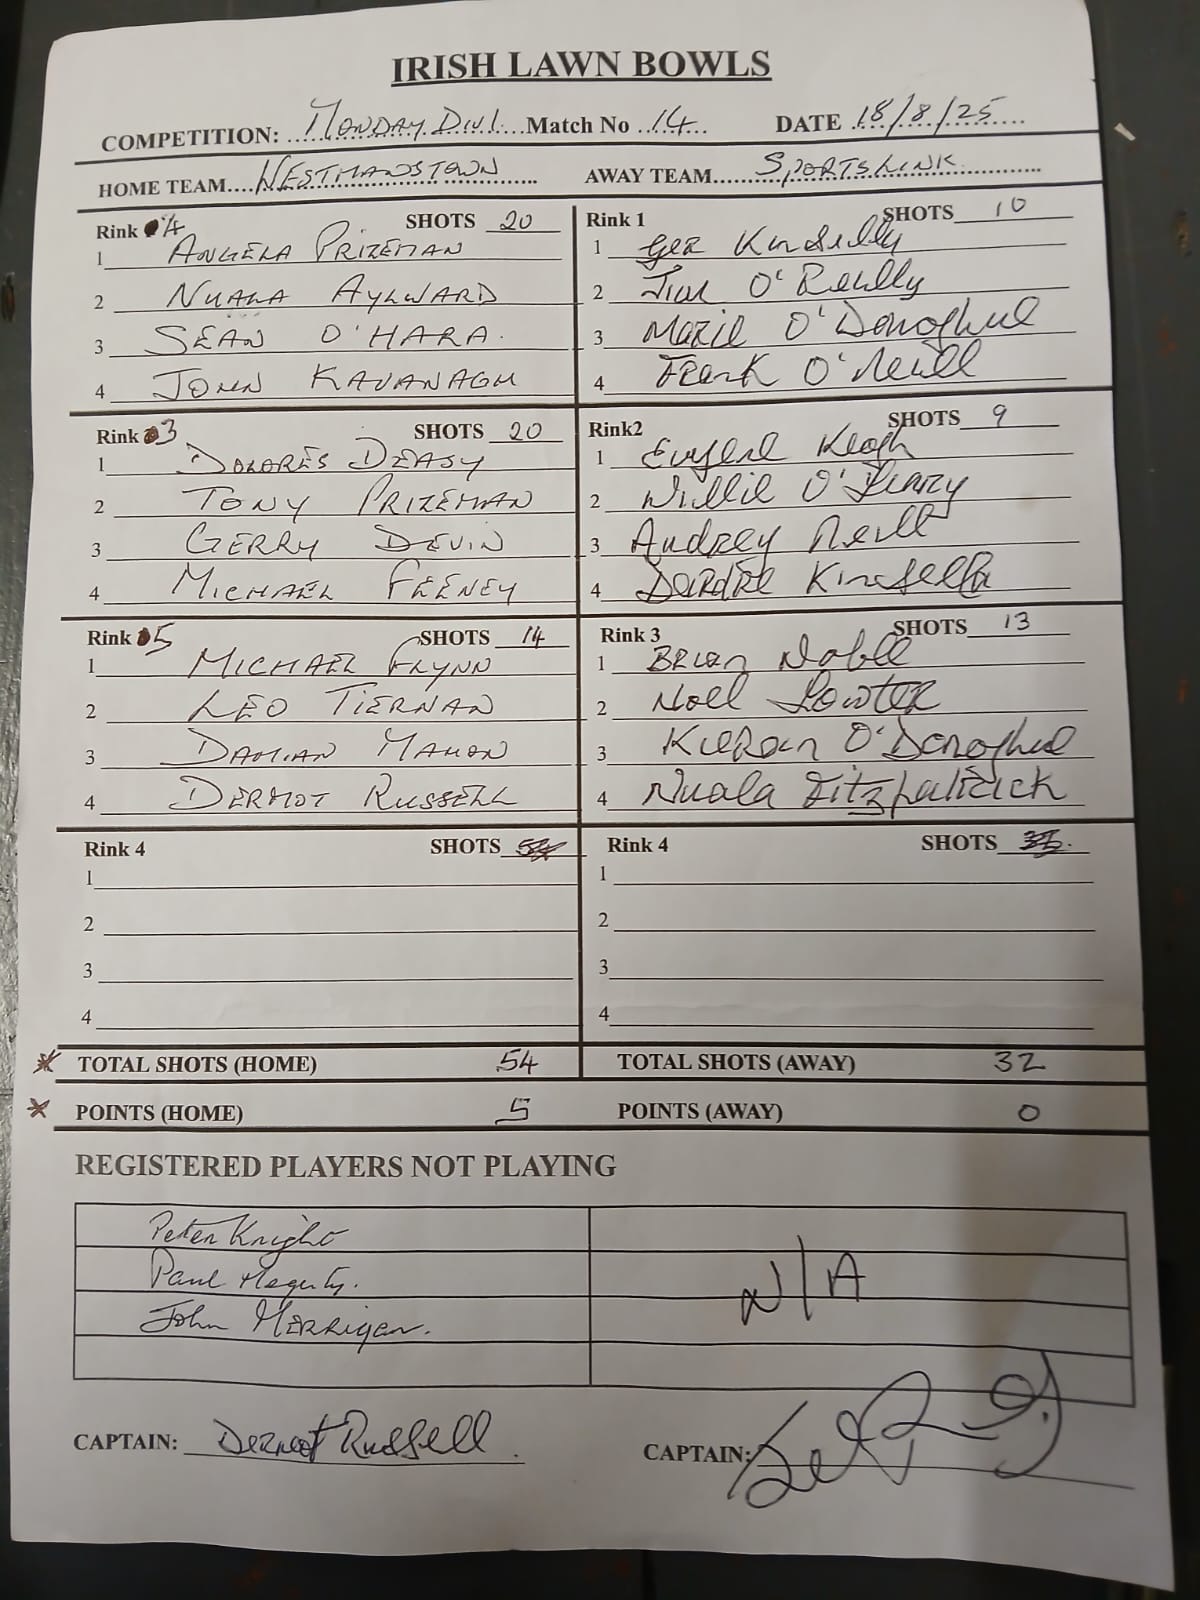 IRISH LAWN BOWLS
COMPETITION: MONDAY DIV 1 Match No 14 DATE 18/8/25
HOME TEAM WESTMANSTOWN AWAY TEAM SPORTSLINK
Rink 4 SHOTS 20
1 ANGELA PRIZEMAN
2 NUALA AYLWARD
3 SEAN O'HARA.
4 JOHN KAVANAGH
Rink 1 SHOTS 10
1 Ger Kinselly
2 Jim O'Reilly
3 Marie O'Donoghue
4 Frank O'Neill
Rink 3 SHOTS 20
1 DOLORES DEASY
2 TONY PRIZEMAN
3 GERRY DEVIN
4 MICHAEL FEENEY
Rink2 SHOTS 9
1 Eugene Keogh
2 Willie O'Leary
3 Audrey Neill
4 Deirdre Kinsella
Rink 5 SHOTS 14
1 MICHAEL FLYNN
2 LEO TIERNAN
3 DAMIAN MAHON
4 DERMOT RUSSELL
Rink 3 SHOTS 13
1 Brian Noble
2 Noel Lowter
3 Kieran O'Donoghue
4 Nuala Fitzpatrick
Rink 4 SHOTS
1
2
3
4
Rink 4 SHOTS
1
2
3
4
TOTAL SHOTS (HOME) 54 TOTAL SHOTS (AWAY) 32
POINTS (HOME) 5 POINTS (AWAY) 0
REGISTERED PLAYERS NOT PLAYING
Peter Knight
Paul Hegarty.
John Merrigan.
N/A
CAPTAIN: Dermot Russell
CAPTAIN: